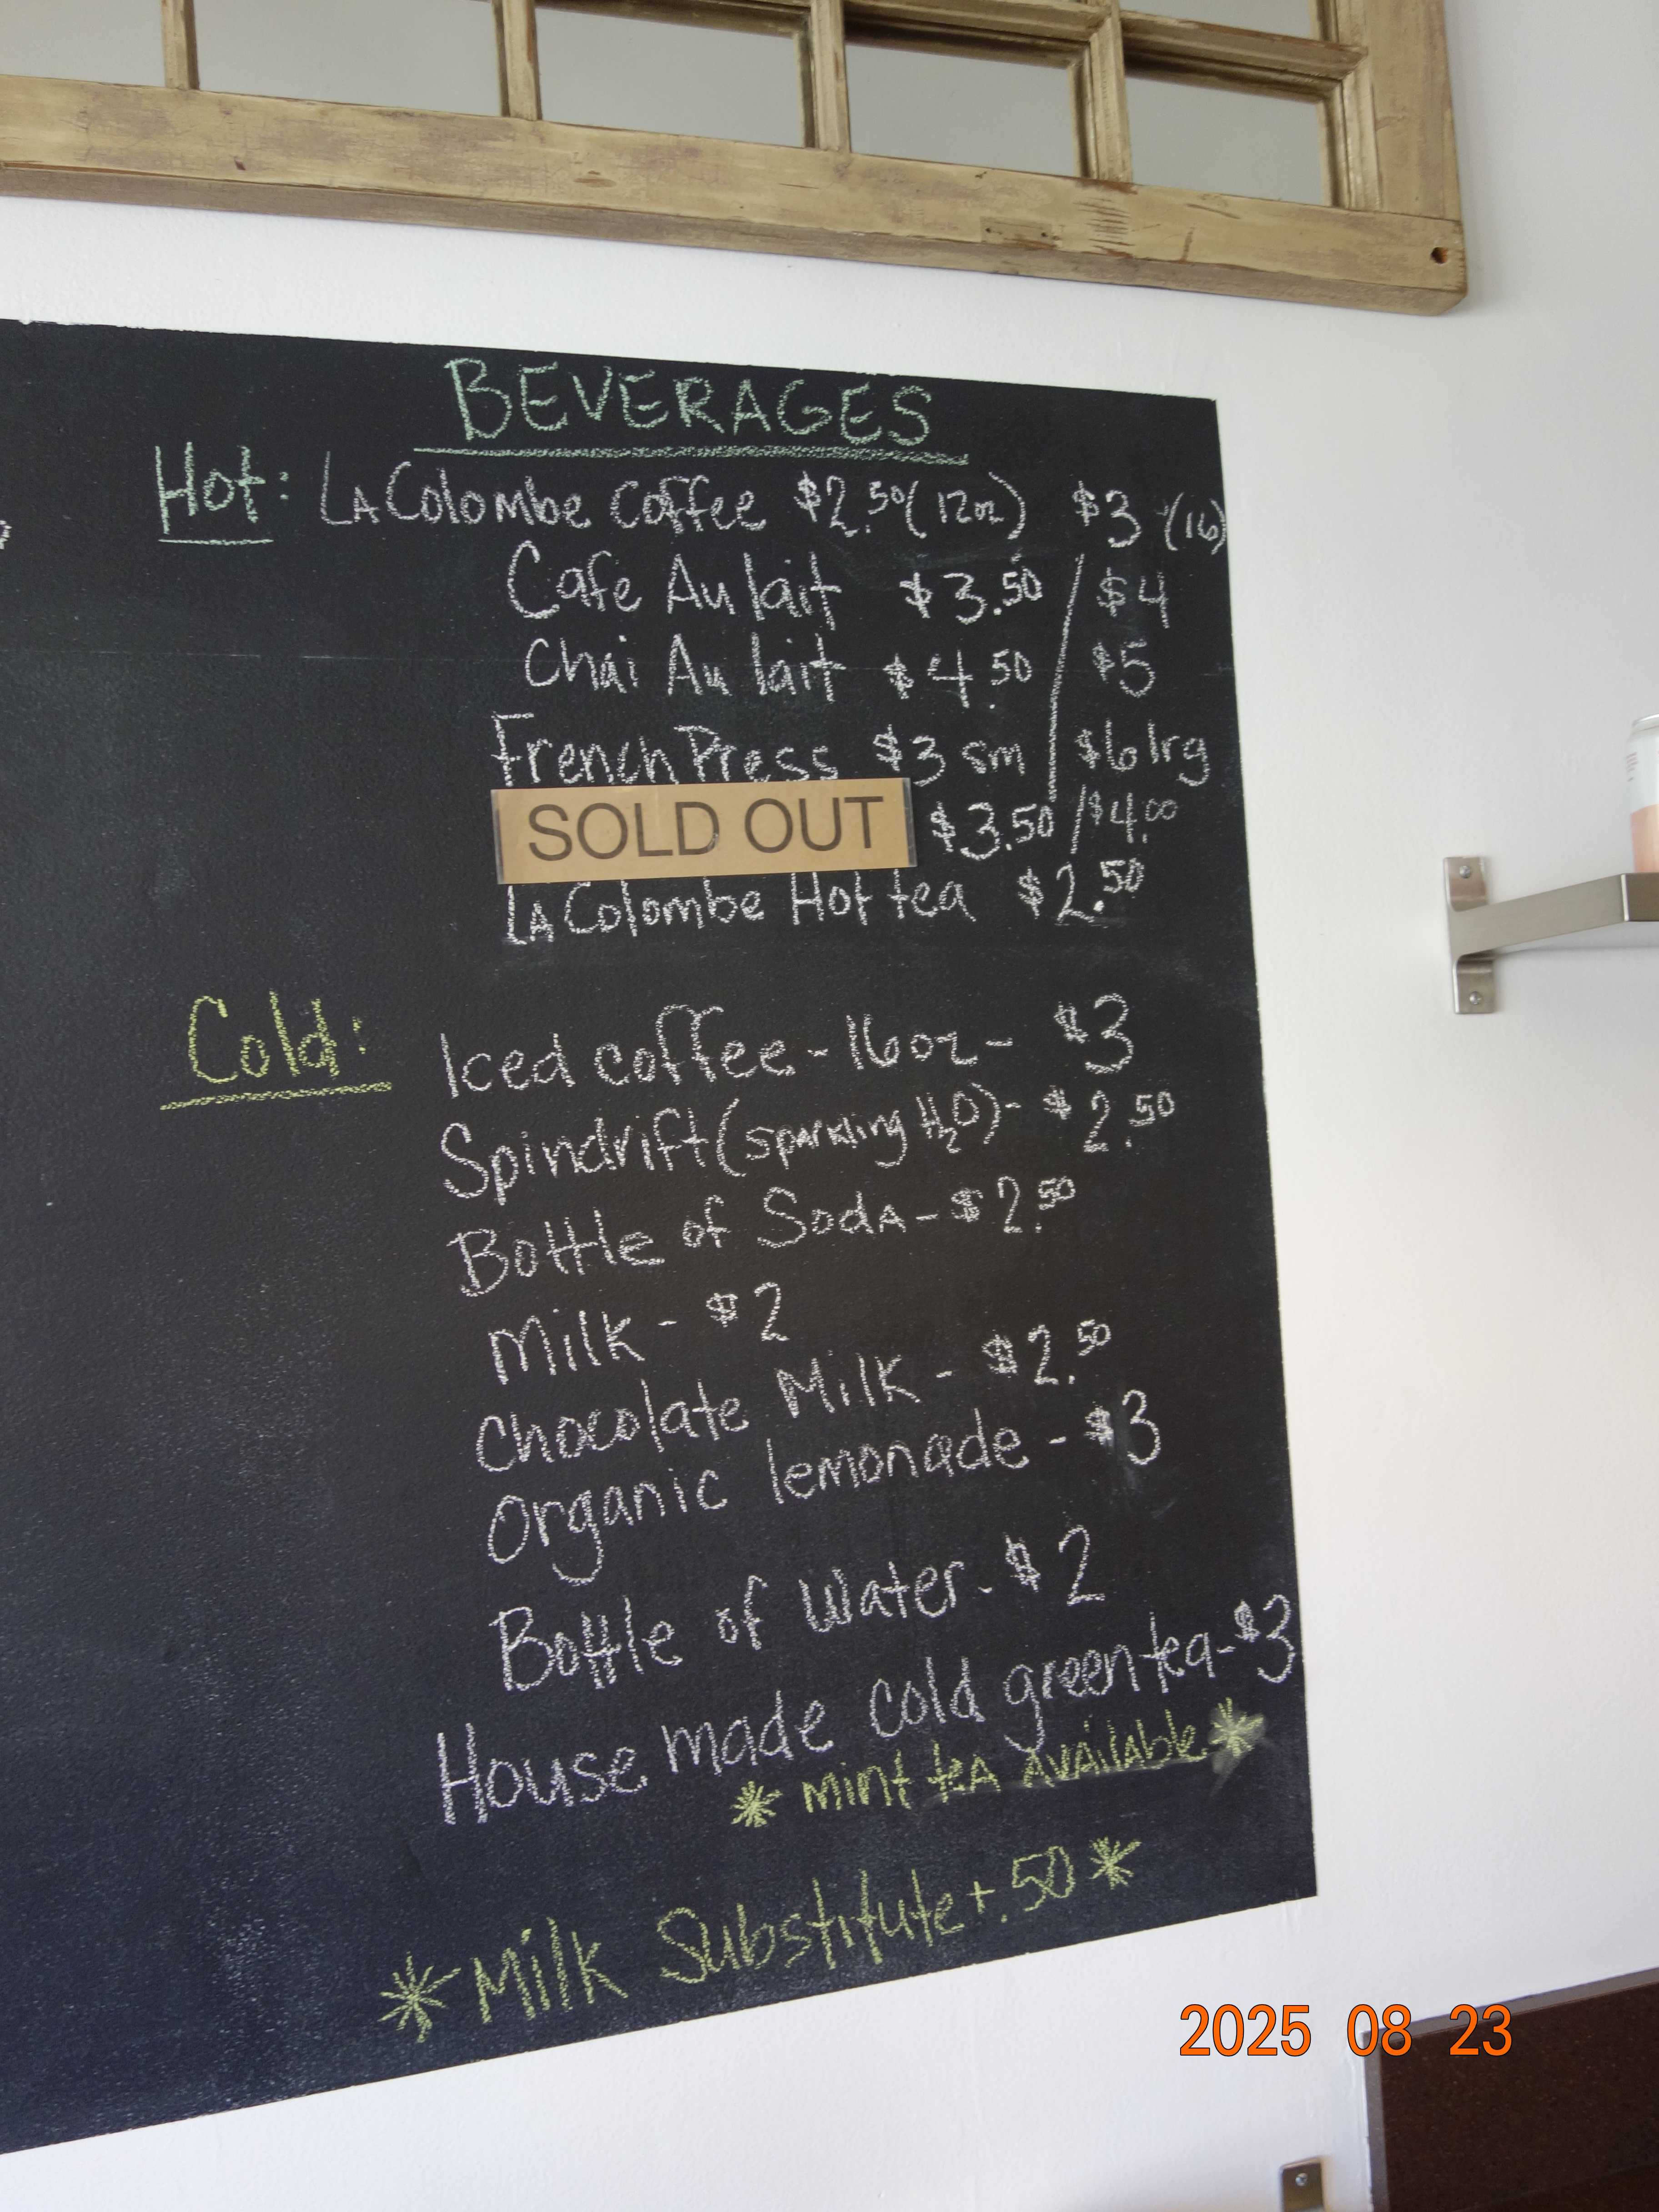 BEVERAGES
Hot: LA Colombe Coffee $2.50 (12oz) $3 (16)
Cafe Au lait $3.50 / $4
Chai Au lait $4.50 / $5
French Press $3 sm / $6 lrg
SOLD OUT $3.50 / $4.00
LA Colombe Hot tea $2.50
Cold: Iced coffee - 16oz - $3
Spindrift (sparkling H2O) - $2.50
Bottle of Soda - $2.50
Milk - $2
Chocolate Milk - $2.50
Organic lemonade - $3
Bottle of Water - $2
House made cold green tea - $3
* Mint tea available *
* Milk Substitute + .50 *
2025 08 23